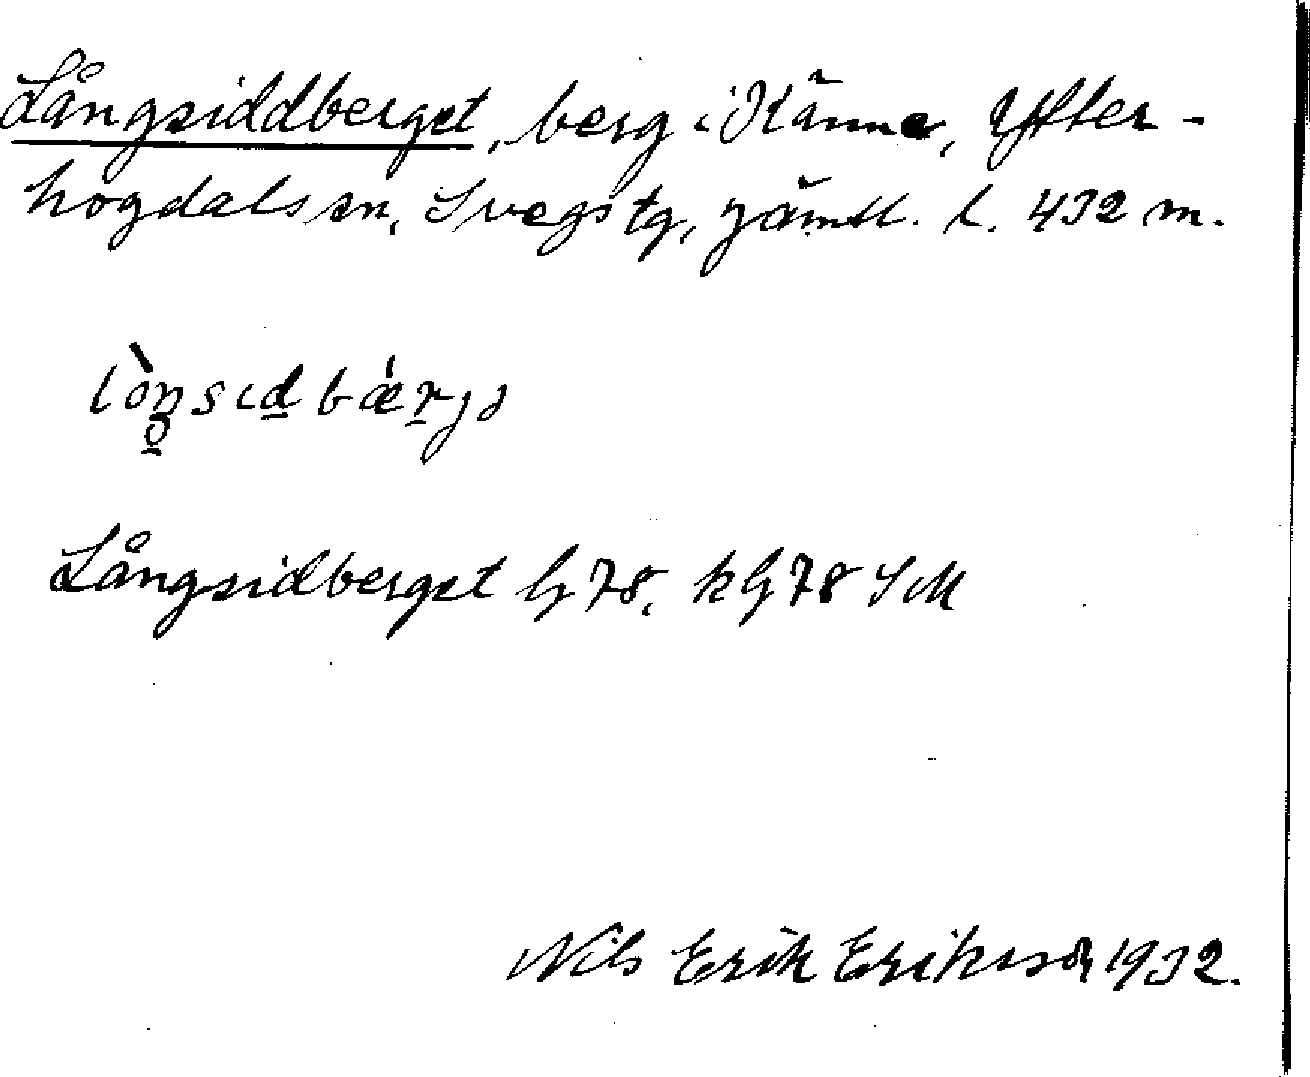 Långsiddberget, berg i Känne, Ytter-
hogdals sn, Svegs tg, Jämtl. l. 432 m.
Långsidberget G 78, k G 78 SM
Nils Erik Eriksson 1932.